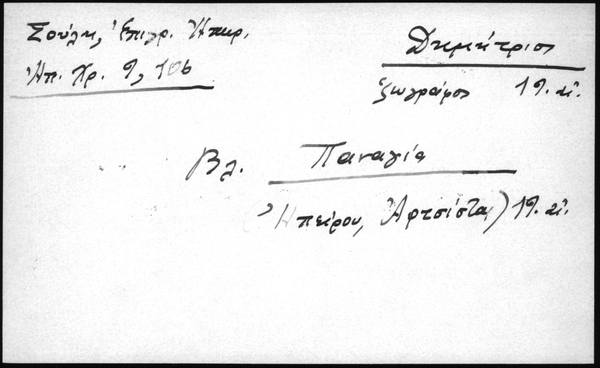 Σούλη, Ἐπιγρ. Ἠπειρ.
Ἠπ. Χρ. 9, 106
Δημήτριος
ζωγράφος 19. αἰ.
Βλ. Παναγία
(Ἠπείρου, Ἀρτσίστα) 19. αἰ.